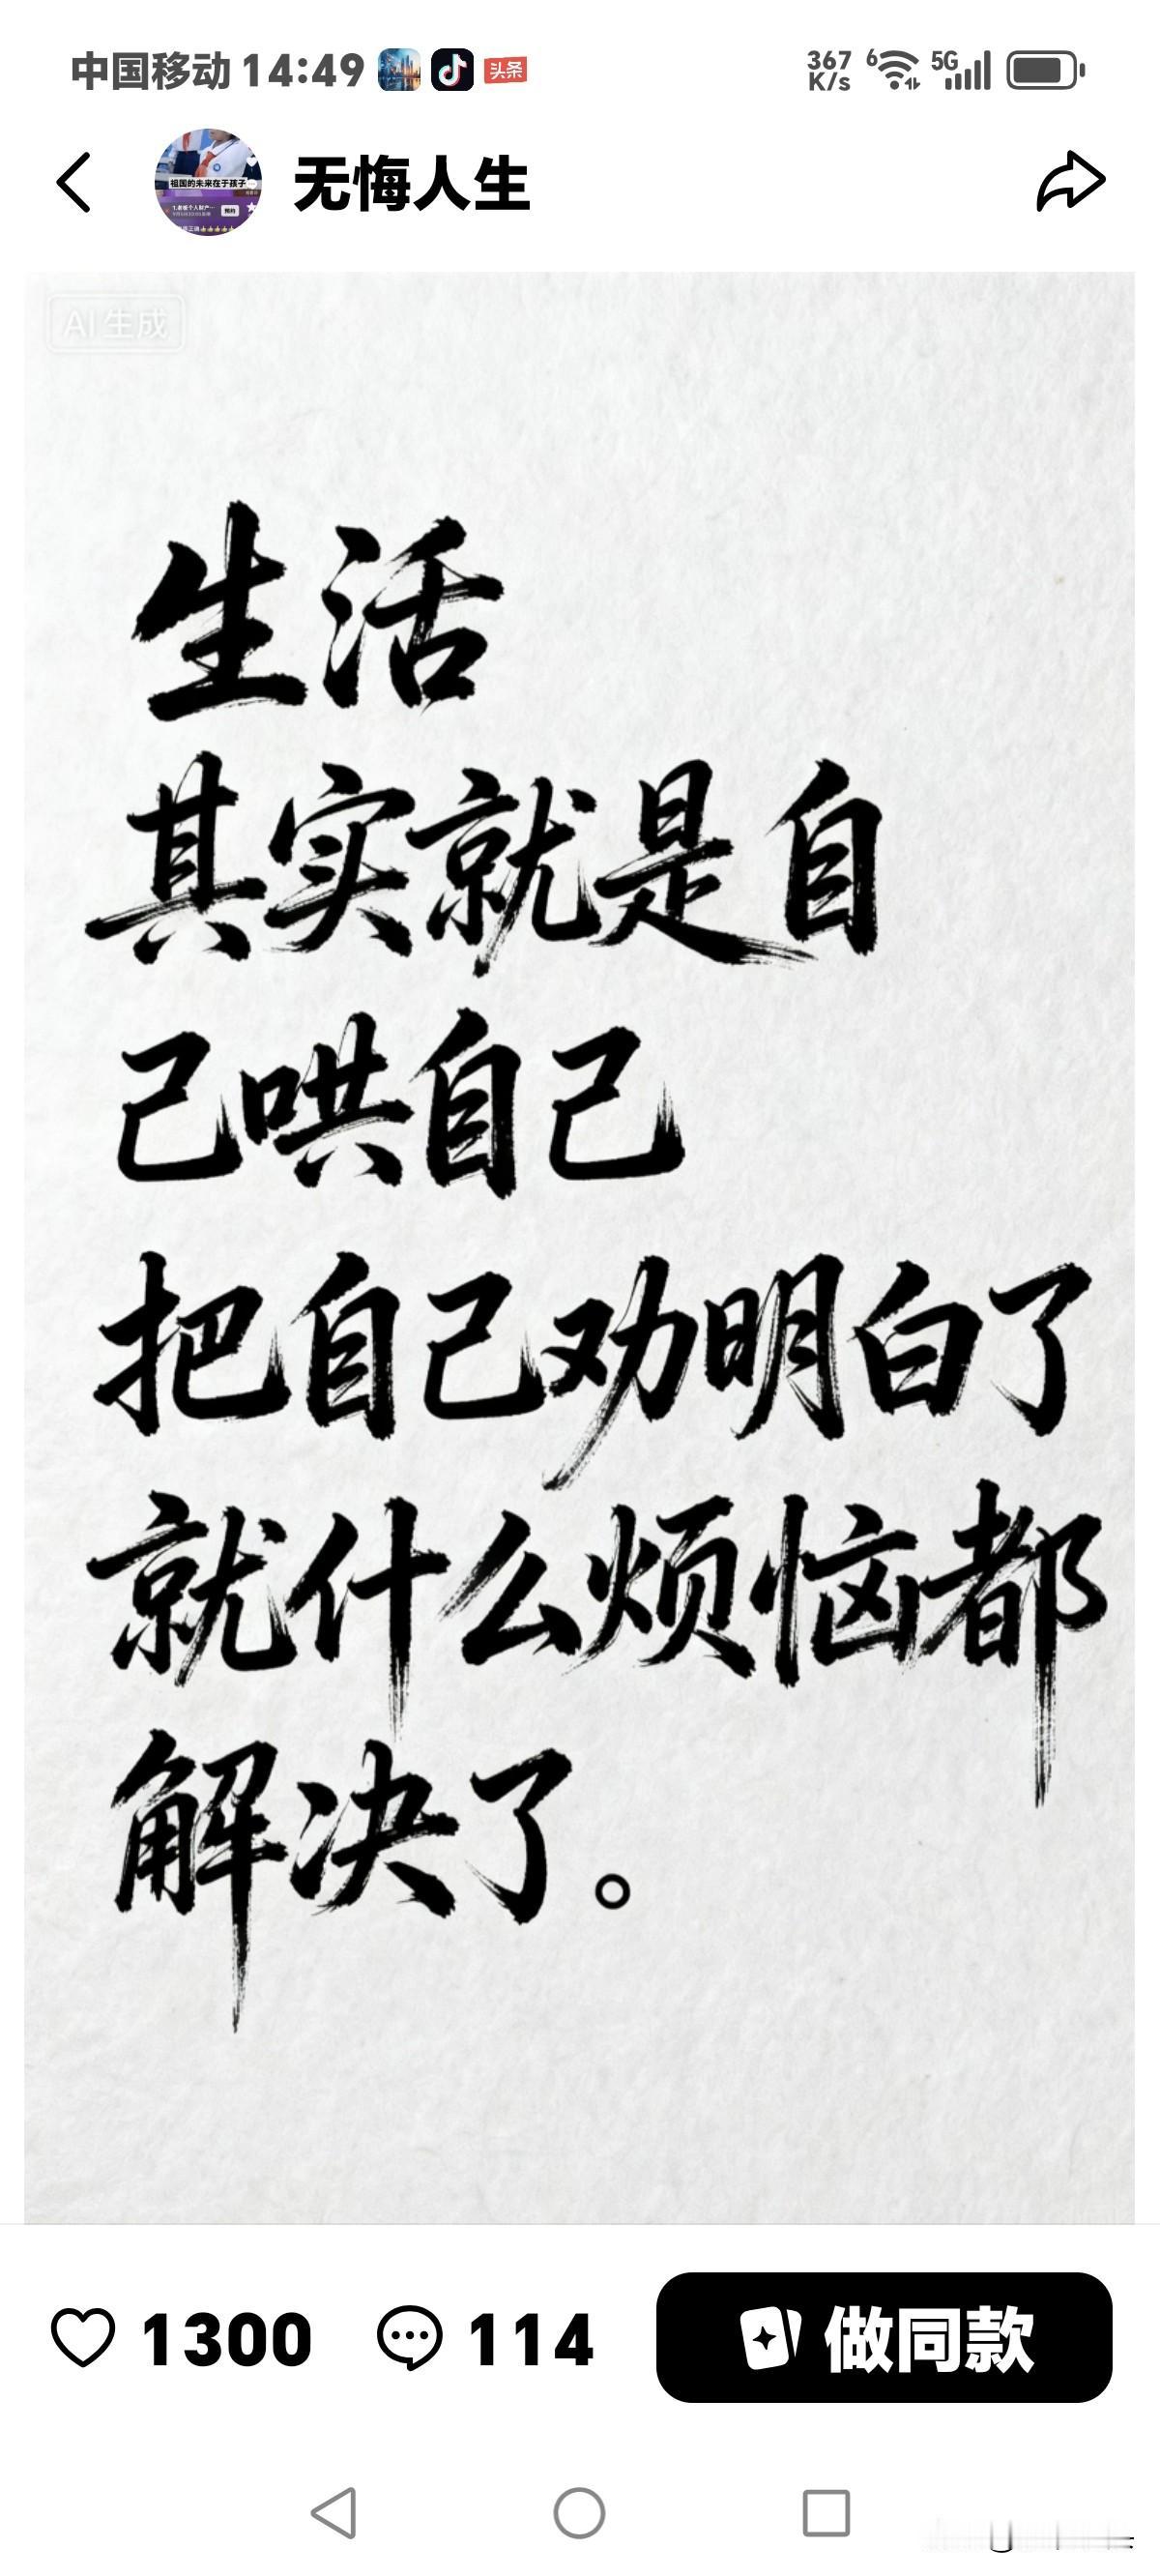 中国移动 14:49 头条 367 K/s 6 5G
无悔人生
祖国的未来在于孩子
AI生成
生活
其实就是自
己哄自己
把自己劝明白了
就什么烦恼都
解决了。
1300 114 做同款